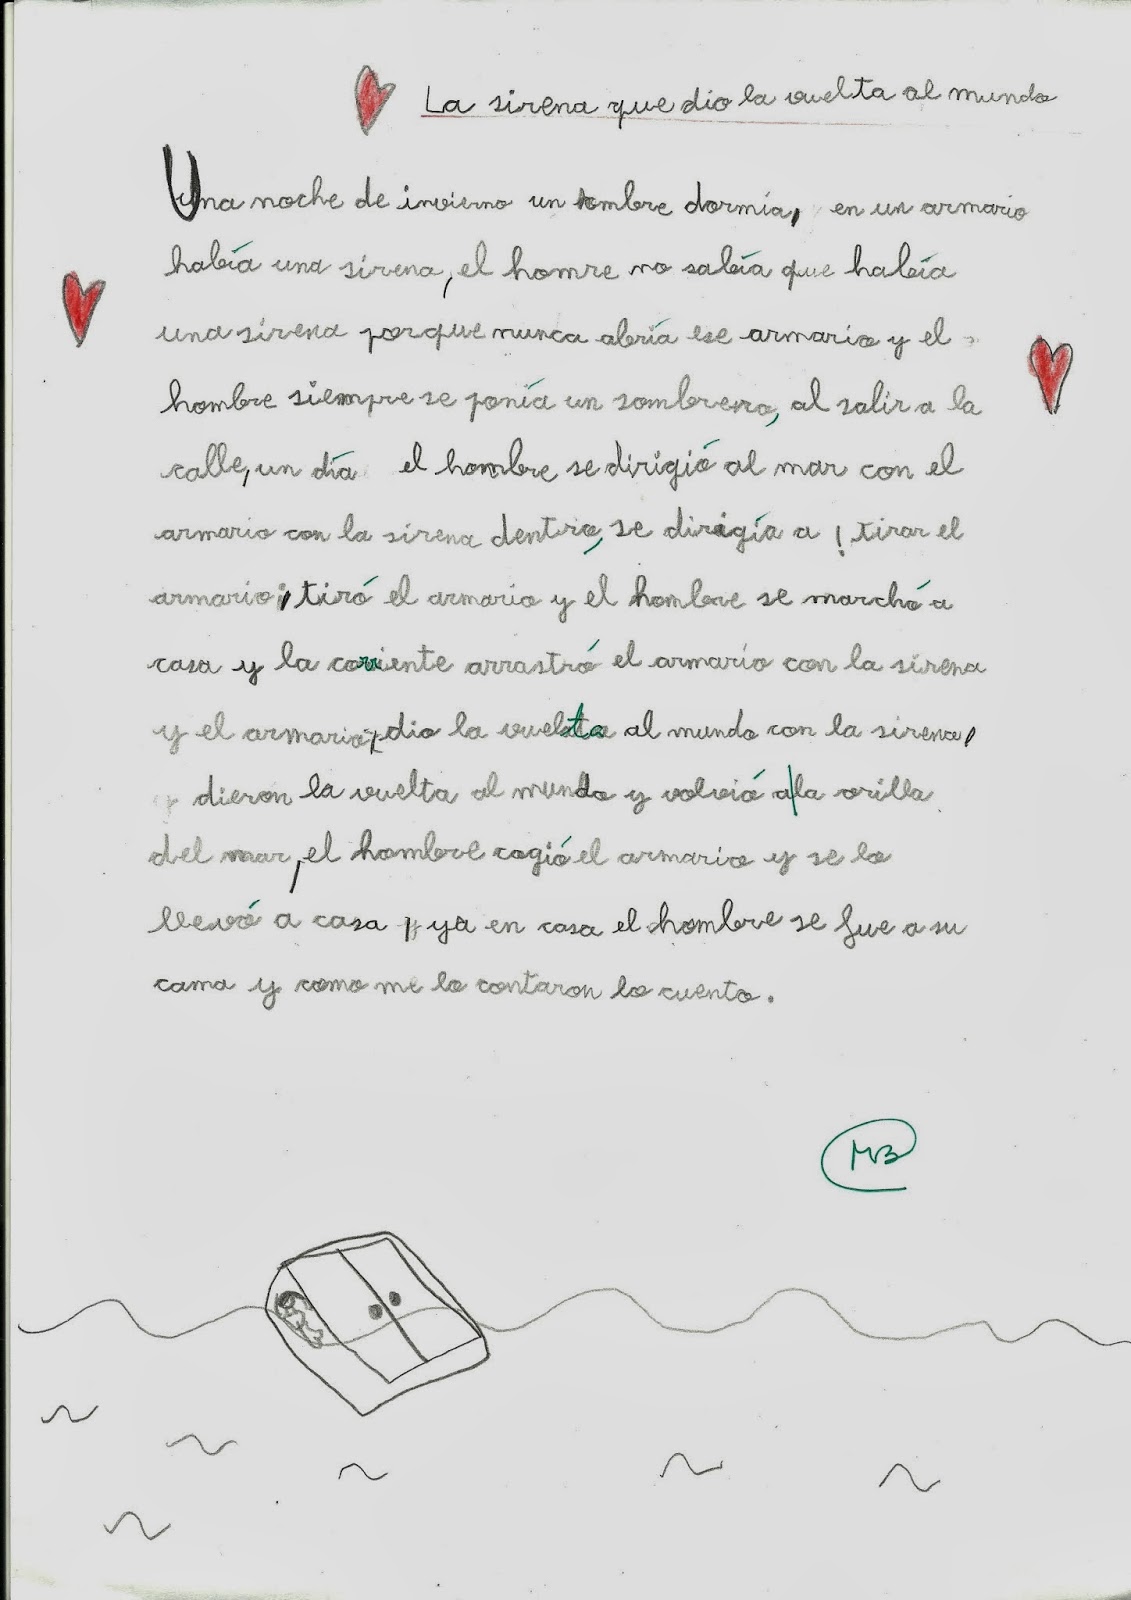 La sirena que dio la vuelta al mundo
Una noche de invierno un hombre dormía, en un armario
había una sirena, el homre no sabía que había
una sirena porque nunca abría ese armario y el
hombre siempre se ponía un sombrero, al salir a la
calle, un día el hombre se dirigió al mar con el
armario con la sirena dentro, se dirigía a ¡tirar el
armario! tiró el armario y el hombre se marchó a
casa y la corriente arrastró el armario con la sirena
y el armario dio la vuelta al mundo con la sirena,
y dieron la vuelta al mundo y volvió a la orilla
del mar, el hombre cogió el armario y se lo
llevó a casa, ya en casa el hombre se fue a su
cama y como me lo contaron lo cuento.
MB